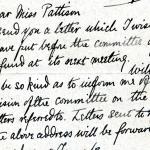 ear Miss Pattison
end you a letter which I wis
ave put before the committee o
fund at its next meeting.
Will
be so kind as to inform me of
ision of the committee on the
tters referred to. Letters sent to t
e above address will be forwar